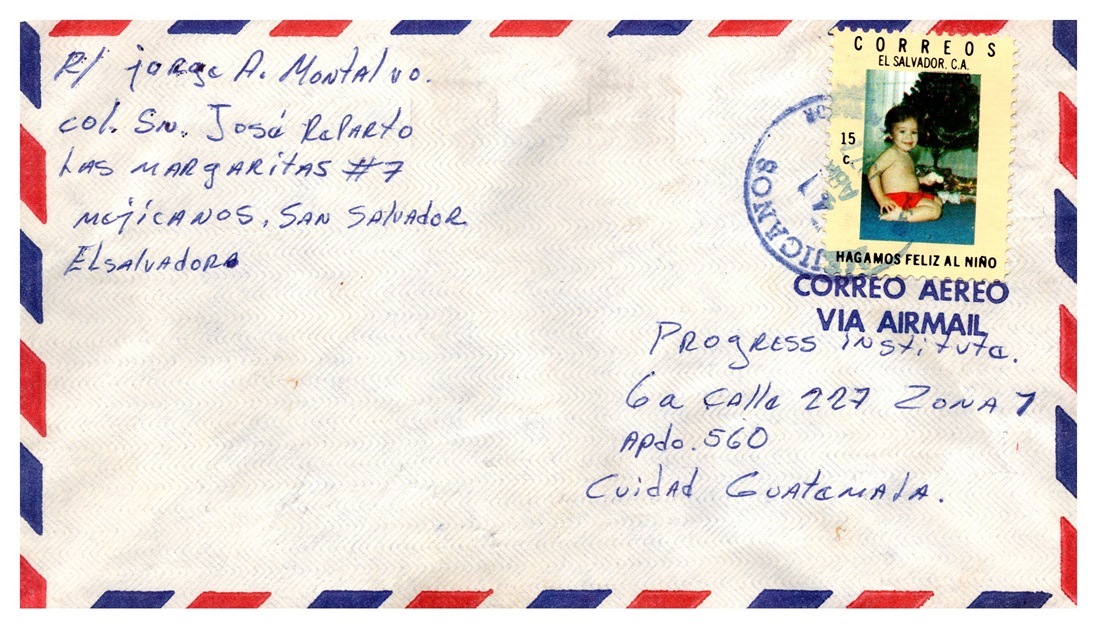 R/ jorge A. Montalvo.
col. Sn. José Reparto
Las Margaritas #7
mejicanos, San Salvador
El salvador
CORREOS
EL SALVADOR, C.A.
15
c.
HAGAMOS FELIZ AL NIÑO
MEJICANOS
ABR
CORREO AEREO
VIA AIRMAIL
Progress instituta.
6a calle 227 ZONA 1
Apdo. 560
Cuidad Guatemala.